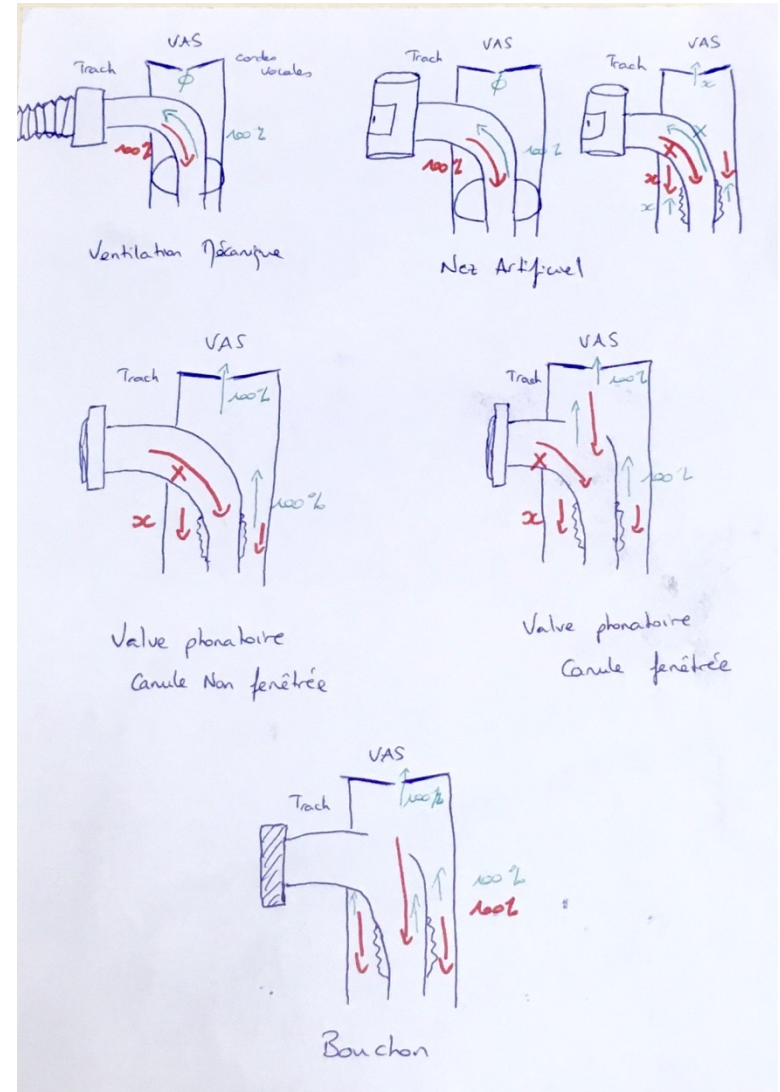 VAS
Trach
cordes
vocales
φ
100%
100%
Ventilation Mécanique
VAS
Trach
φ
100%
100%
VAS
Trach
x
x
X
x
x
Nez Artificiel
VAS
Trach
100%
X
100%
x
Valve phonatoire
Canule Non fenêtrée
VAS
Trach
100%
X
100%
x
Valve phonatoire
Canule fenêtrée
VAS
Trach
100%
100%
100%
Bouchon